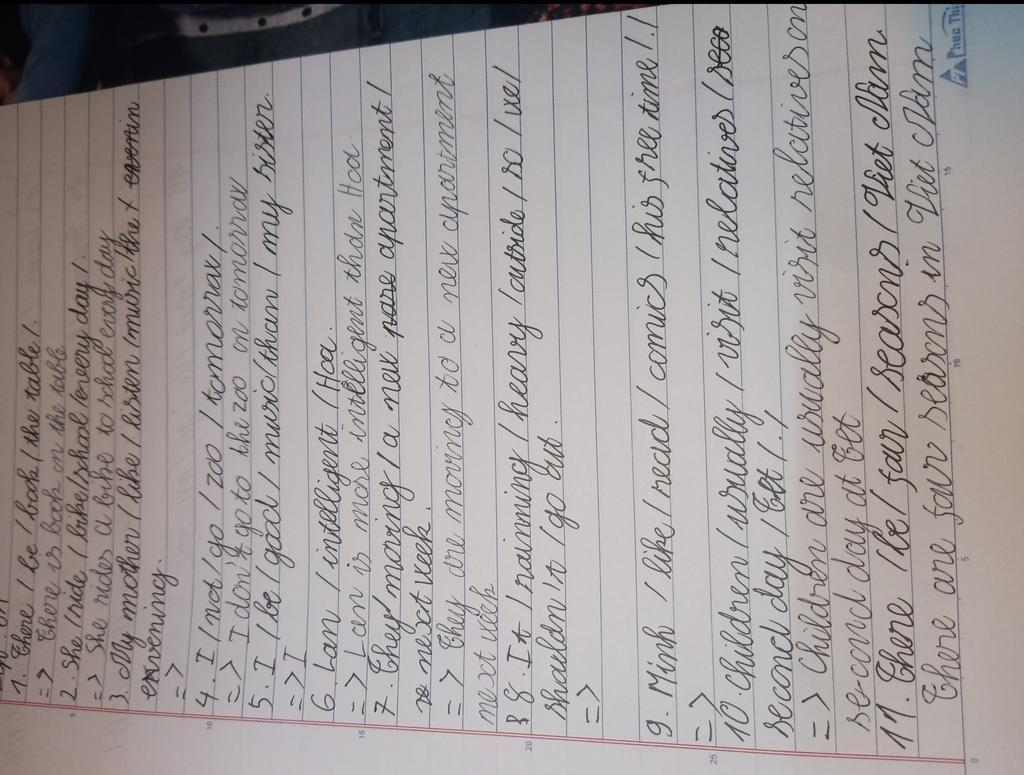 1. There / be / book / the table /.
=> There is book on the table
2. She / ride / bike / school / every day /.
=> She rides a bike to shool every day
3. My mother / like / listen / music / the
envening.
=>
4. I / not / go / zoo / tomorrow /.
=> I don't go to the zoo on tomorrow
5. I / be / good / music / than / my sister.
=> I
6. Lan / intelligent / Hoa.
=> Lan is more intelligent than Hoa
7. They / moving / a new apartment /
next week.
=> They are moving to a new apartment
next week
8. It / rainning / heavy / outside / so / we /
shouldn't / go out.
=>
9. Minh / like / read / comics / his free time /./
=>
10. Children / usually / visit / relatives /
second day / Tet /./
=> Children are usually visit relatives on
second day at Tet
11. There / be / four / seasons / Viet Nam
There are four seasons in Viet Nam
Phuc Thi
5
10
15
20
25
0
5
10
15